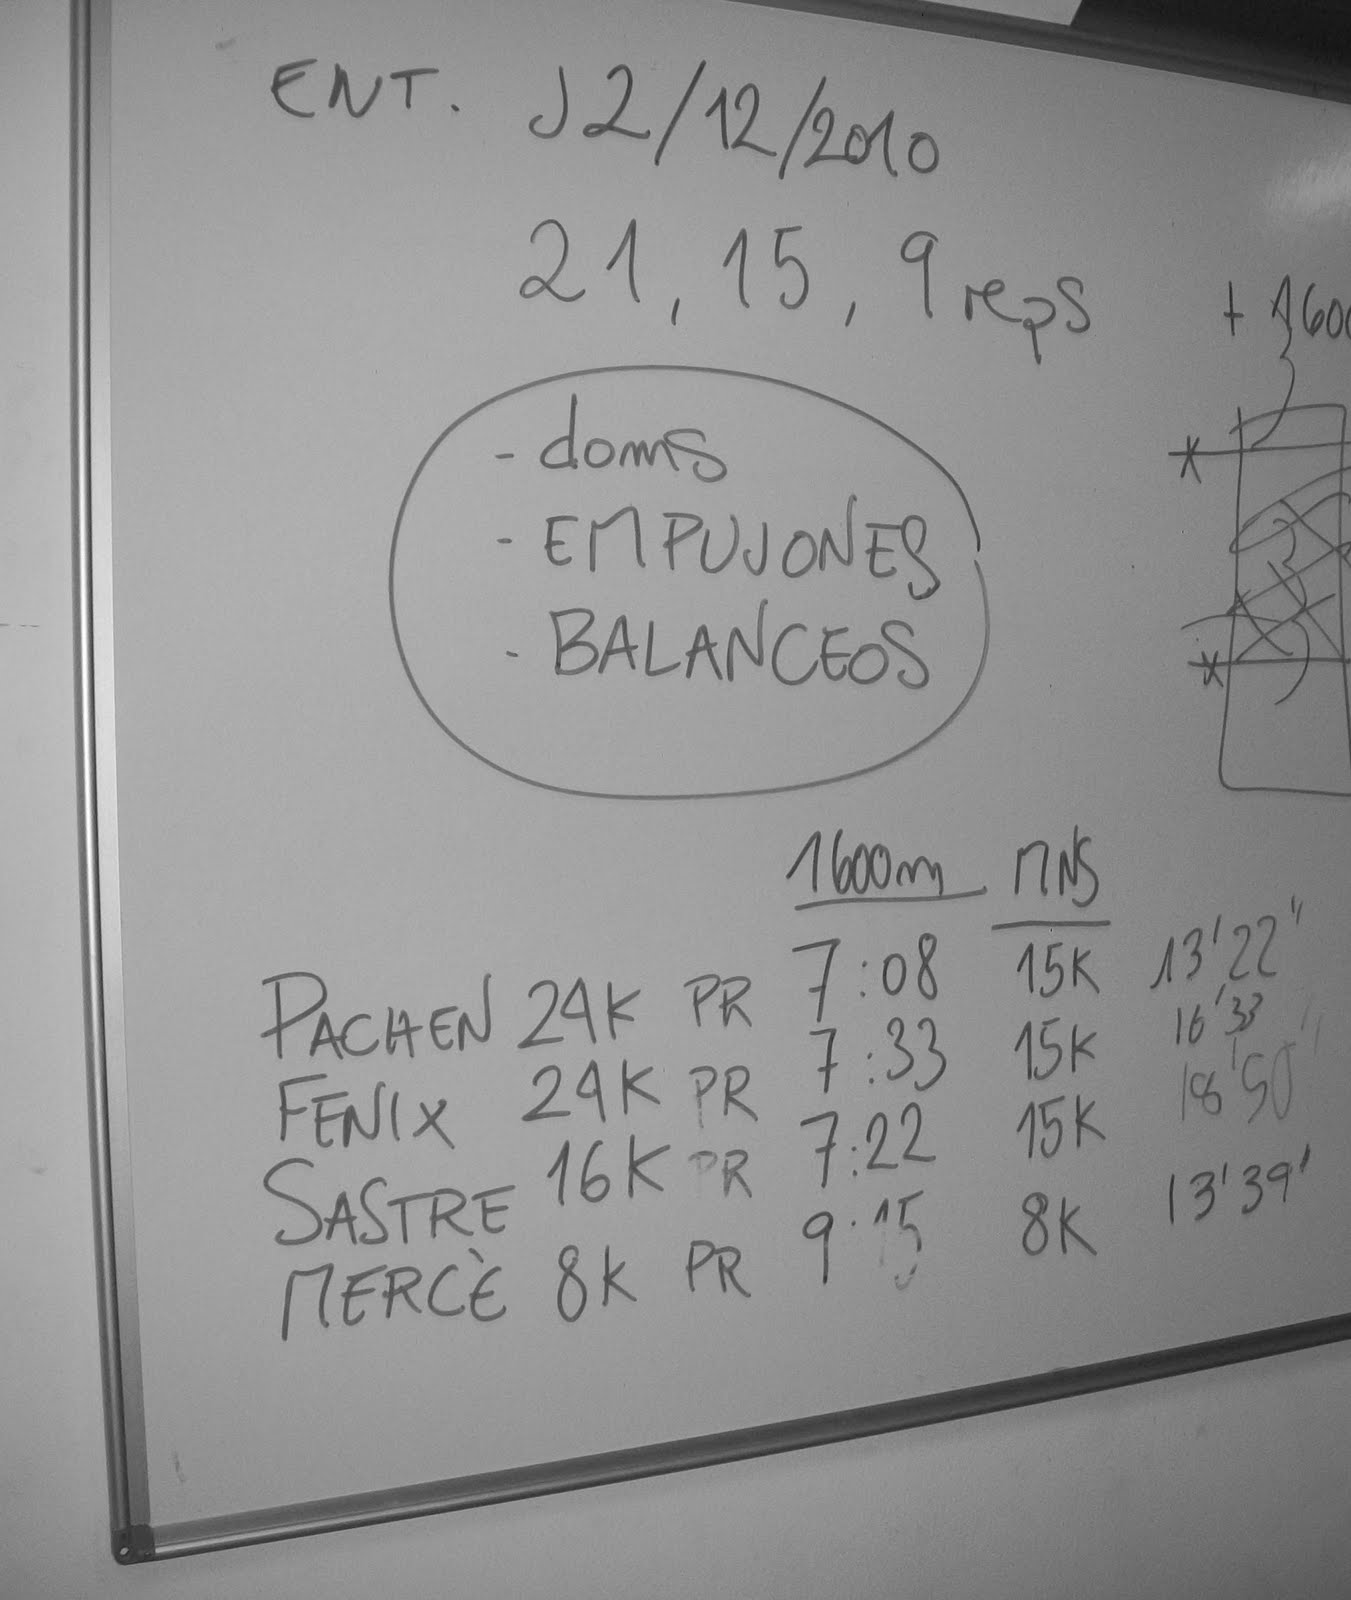 ENT. J2/12/2010
21, 15, 9 reps
+ 1600
- doms
- EMPUJONES
- BALANCEOS
1600m MNS
PACHEN 24K PR 7:08 15K 13'22"
FENIX 24K PR 7:33 15K 16'33
SASTRE 16K PR 7:22 15K 18'50"
MERCÈ 8K PR 9:15 8K 13'39'